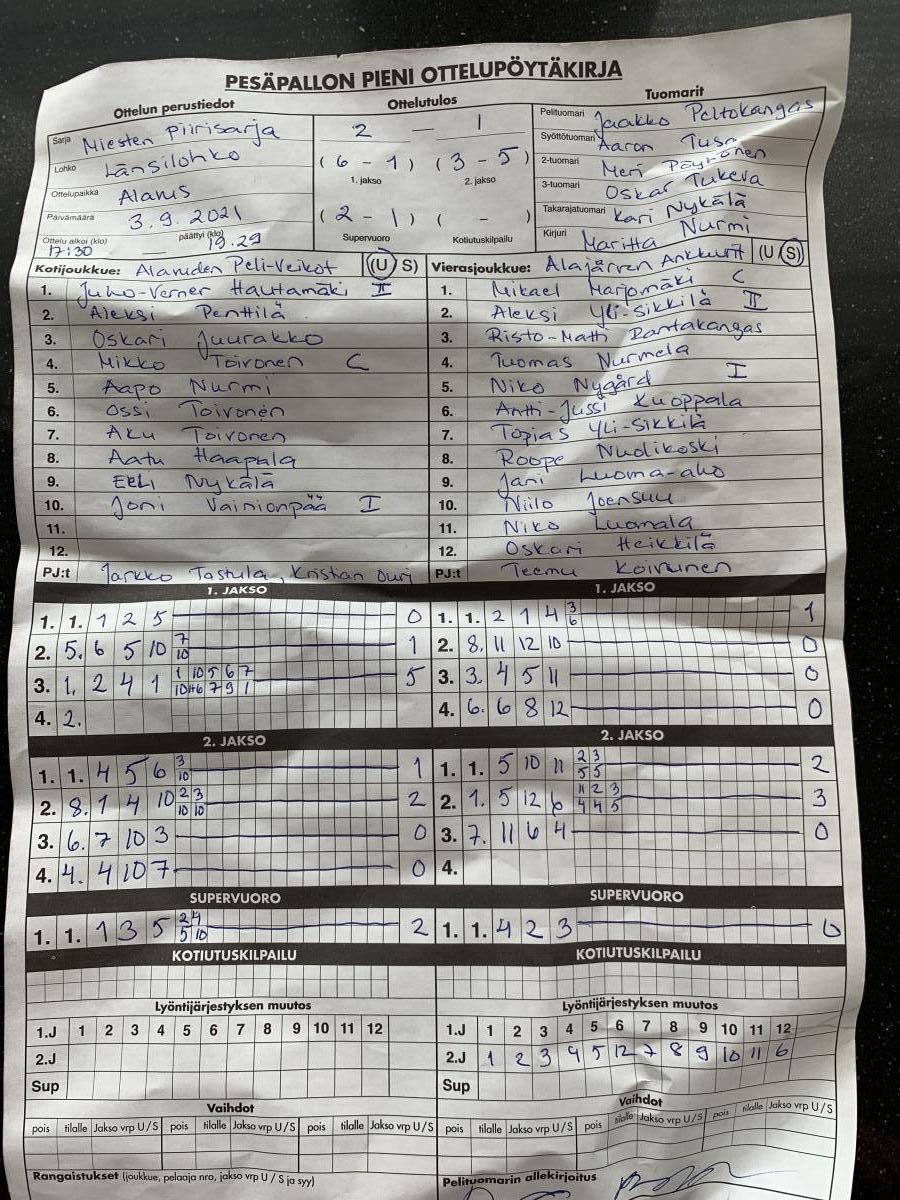 PESÄPALLON PIENI OTTELUPÖYTÄKIRJA
Ottelun perustiedot
Sarja Miesten Piirisarja
Lohko Länsilohko
Ottelupaikka Alavus
Päivämäärä 3.9.2021
Ottelu alkoi (klo) 17:30 — päättyi (klo) 19.29
Ottelutulos
2 — 1
(6 - 1) (3 - 5)
1. jakso 2. jakso
(2 - 1) ( - )
Supervuoro Kotiutuskilpailu
Tuomarit
Pelituomari Jaakko Peltokangas
Syöttötuomari Aaron
2-tuomari Meri Pöyhönen
3-tuomari Oskar Tukeva
Takarajatuomari Kari Nykälä
Kirjuri Maritta Nurmi
Kotijoukkue: Alavuden Peli-Veikot (U S)
1. Juho-Verner Hautamäki II
2. Aleksi Penttilä
3. Oskari Juurakko
4. Mikko Toivonen C
5. Aapo Nurmi
6. Ossi Toivonen
7. Aku Toivonen
8. Aatu Haapala
9. Eeli Nykälä
10. Joni Vainionpää I
11.
12.
PJ:t Jarkko Tastula, Kristian
Vierasjoukkue: Alajärven Ankkurit (U S)
1. Mikael Marjomäki C
2. Aleksi Yli-Sikkilä II
3. Risto-Matti Rantakangas
4. Tuomas Nurmela
5. Niko Nygård I
6. Antti-Jussi Kuoppala
7. Topias Yli-Sikkilä
8. Roope
9. Jani Luoma-aho
10. Niilo Joensuu
11. Niko Luomala
12. Oskari Heikkilä
PJ:t Teemu Koivunen
1. JAKSO
1. 1. 1 2 5 0
2. 5. 6 5 10 7 10 1
3. 1. 2 4 1 1 10 5 6 7 5
4. 2.
1. JAKSO
1. 1. 2 1 4 3 6 1
2. 8. 11 12 10 0
3. 3. 4 5 11 0
4. 6. 6 8 12 0
2. JAKSO
1. 1. 4 5 6 3 10 1
2. 8. 1 4 10 2 3 10 10 2
3. 6. 7 10 3 0
4. 4. 4 10 7 0
2. JAKSO
1. 1. 5 10 11 2 3 5 5 2
2. 1. 5 12 6 11 2 3 4 4 5 3
3. 7. 11 6 4 0
4.
SUPERVUORO
1. 1. 1 3 5 2 4 5 10 2
SUPERVUORO
1. 1. 4 2 3 0
KOTIUTUSKILPAILU
KOTIUTUSKILPAILU
Lyöntijärjestyksen muutos
1.J 1 2 3 4 5 6 7 8 9 10 11 12
2.J
Sup
Lyöntijärjestyksen muutos
1.J 1 2 3 4 5 6 7 8 9 10 11 12
2.J 1 2 3 4 5 12 7 8 9 10 11 6
Sup
Vaihdot
pois tilalle Jakso vrp U/S pois tilalle Jakso vrp U/S pois tilalle Jakso vrp U/S
Vaihdot
pois tilalle Jakso vrp U/S pois tilalle Jakso vrp U/S pois tilalle Jakso vrp U/S
Rangaistukset (joukkue, pelaaja nro, jakso vrp U / S ja syy)
Pelituomarin allekirjoitus